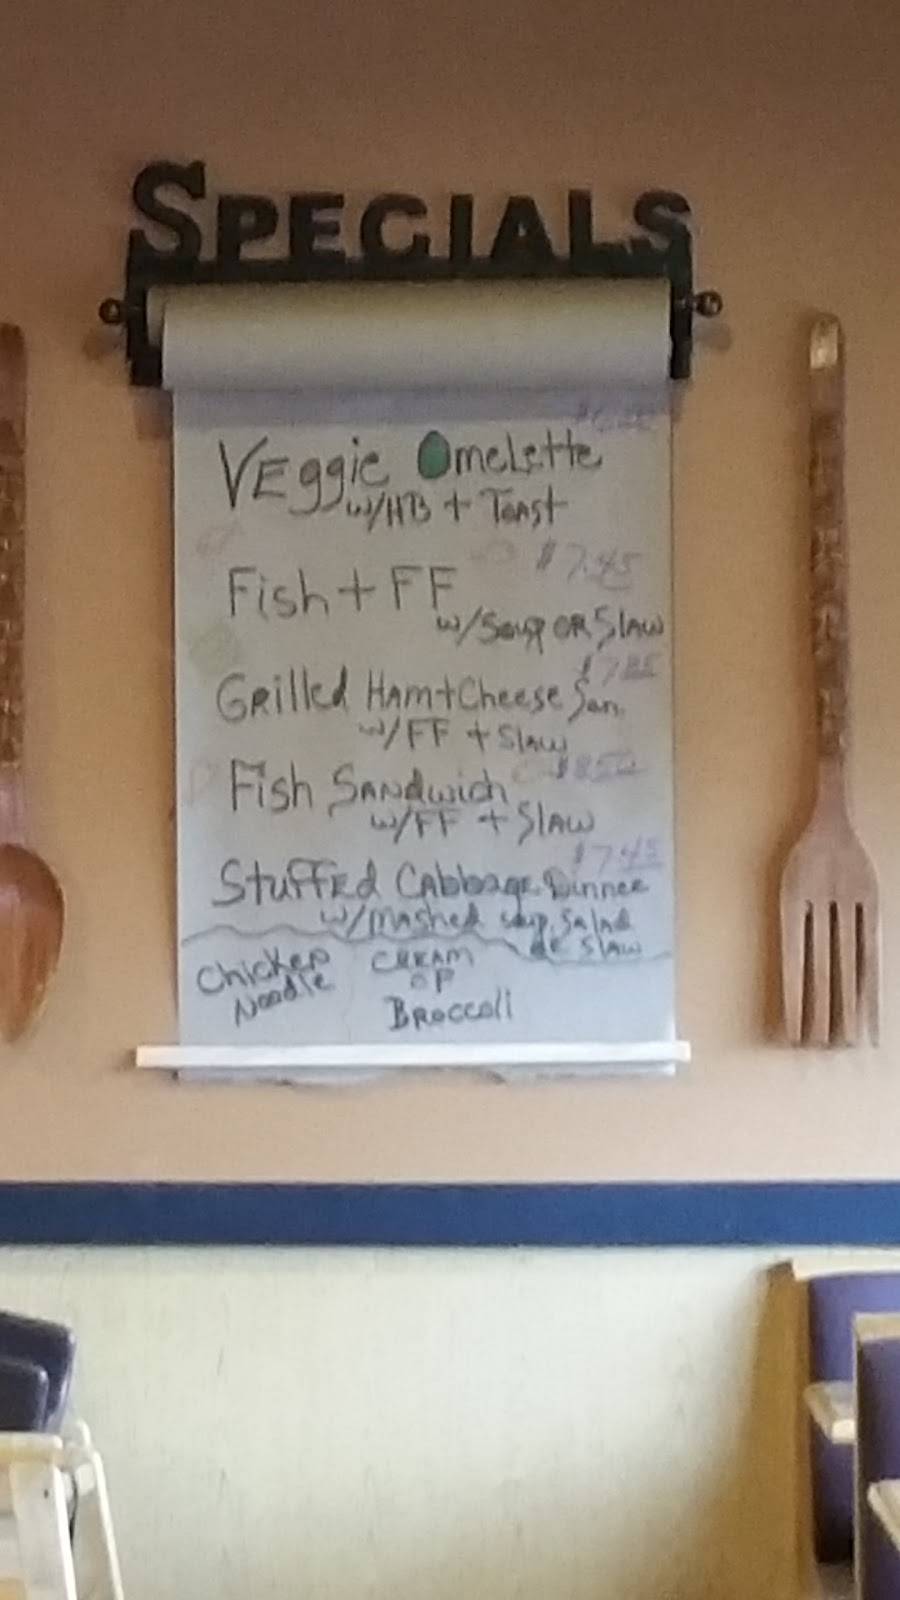 SPECIALS
VEggie OmeLette
w/HB + Toast
$7.45
Fish + FF
w/Soup OR SLAW
Grilled HAM+Cheese San.
w/FF + SLAW
$8.50
Fish SANDwich
w/FF + SLAW
$7.45
Stuffed CAbbage Dinner
w/MASHED Soup, SALAd
OR SLAW
Chicken CREAM
Noodle OF
BRoccoli